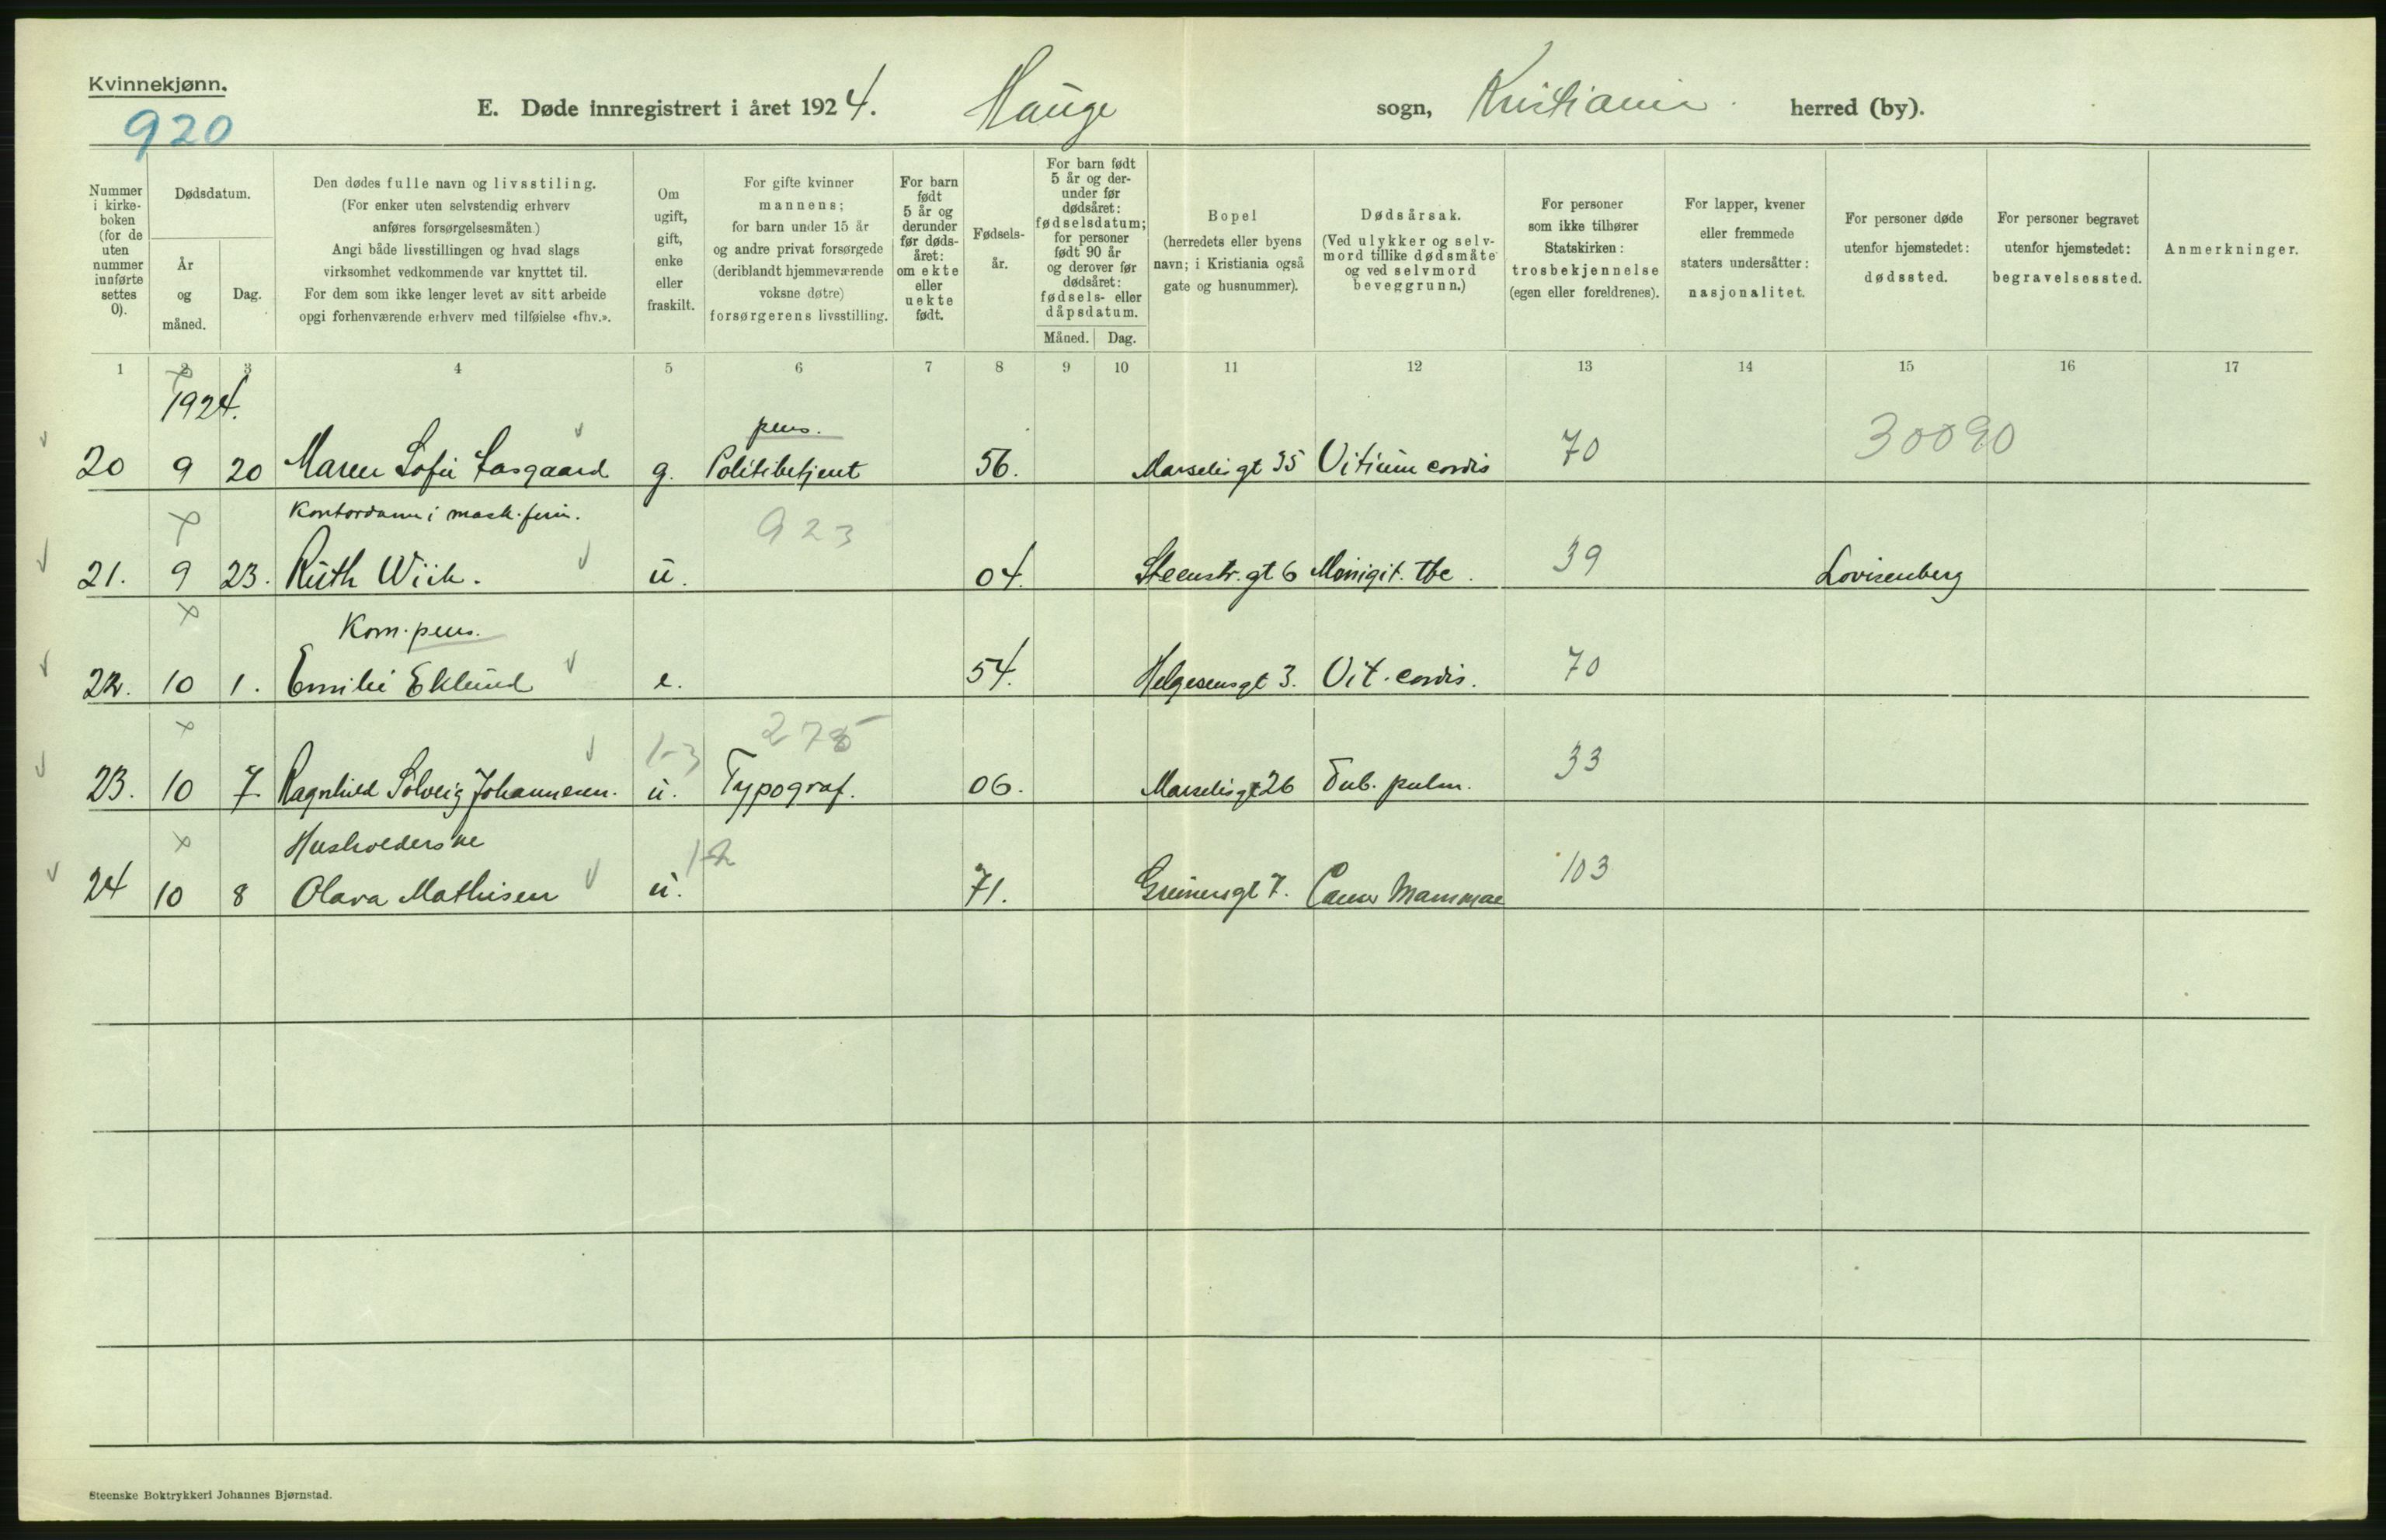 Kvinnekjønn.
920
E. Døde innregistrert i året 1924. Hauge sogn, Kristiania herred (by).
Nummer i kirke-boken (for de uten nummer innførte settes 0).
Dødsdatum.
År og måned.
Dag.
Den dødes fulle navn og livsstiling.
(For enker uten selvstendig erhverv
anføres forsørgelsesmåten)
Angi både livsstillingen og hvad slags
virksomhet vedkommende var knyttet til.
For dem som ikke lenger levet av sitt arbeide
opgi forhenværende erhverv med tilføielse «fhv.».
Om ugift, gift, enke eller fraskilt.
For gifte kvinner
mannens;
for barn under 15 år
og andre privat forsørgede
(deriblandt hjemmeværende
voksne døtre)
forsørgerens livsstilling.
For barn født 5 år og derunder før døds-året: om ekte eller uekte født.
Fødsels-år.
For barn født 5 år og der-under før dødsåret: fødselsdatum; for personer født 90 år og derover før dødsåret: fødsels- eller dåpsdatum.
Måned. Dag.
Bopel
(herredets eller byens
navn; i Kristiania også
gate og husnummer).
Dødsårsak.
(Ved ulykker og selv-
mord tillike dødsmåte
og ved selvmord
beveggrunn.)
For personer
som ikke tilhører
Statskirken:
trosbekjennelse
(egen eller foreldrenes).
For lapper, kvener
eller fremmede
staters undersåtter:
nasjonalitet.
For personer døde
utenfor hjemstedet:
dødssted.
For personer begravet
utenfor hjemstedet:
begravelsessted.
Anmerkninger.
1 2 3 4 5 6 7 8 9 10 11 12 13 14 15 16 17
1924.
pens.
20 9 20 Maren Sofie Aasgaard g. Politibetjent 56. Marselisgt 35 Vitium cordis 70 30090
Kontordame i mask. firm.
923
21. 9 23. Ruth Wiik. u. 04. Steenstr. gt 6 Menigit. tbc. 39 Lovisenberg
Kom. pens.
22. 10 1. Emilie Eklund e. 54. Helgesensgt 3. Vit. cordis. 70
1-3 275
23. 10 7. Ragnhild Solveig Johannesen. u. Typograf. 06. Marselisgt 26 Tub. pulm. 33
Husholderske
1-2
24 10 8 Olava Mathisen u. 71. Grünersgt 7. Cancer Mammae 103
Steenske Boktrykkeri Johannes Bjørnstad.